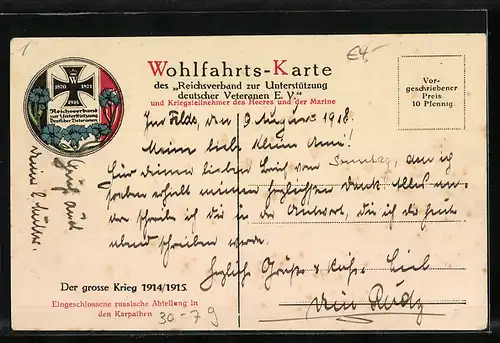 1
€4,-
Wohlfahrts-Karte
des „Reichsverband zur Unterstützung
deutscher Veteranen E. V."
und Kriegsteilnehmer des Heeres und der Marine
Vor-
geschriebener
Preis
10 Pfennig
W
1870 1871
1914
Reichsverband
zur Unterstützung
Deutscher Veteranen.
Im Felde, den 9 August 1918.
Meine liebe kleine
Für deinen lieben Brief von Sonntag, den ich
soeben erhielt meinen herzlichsten Dank. Alles an-
dere schreibe ich dir in der Antwort, die ich dir heute
abend schreiben werde.
Herzliche Grüße & Küße. Dein
Gruß auch
deine l. Mutter.
Der grosse Krieg 1914/1915.
Eingeschlossene russische Abteilung in
den Karpathen
30-79